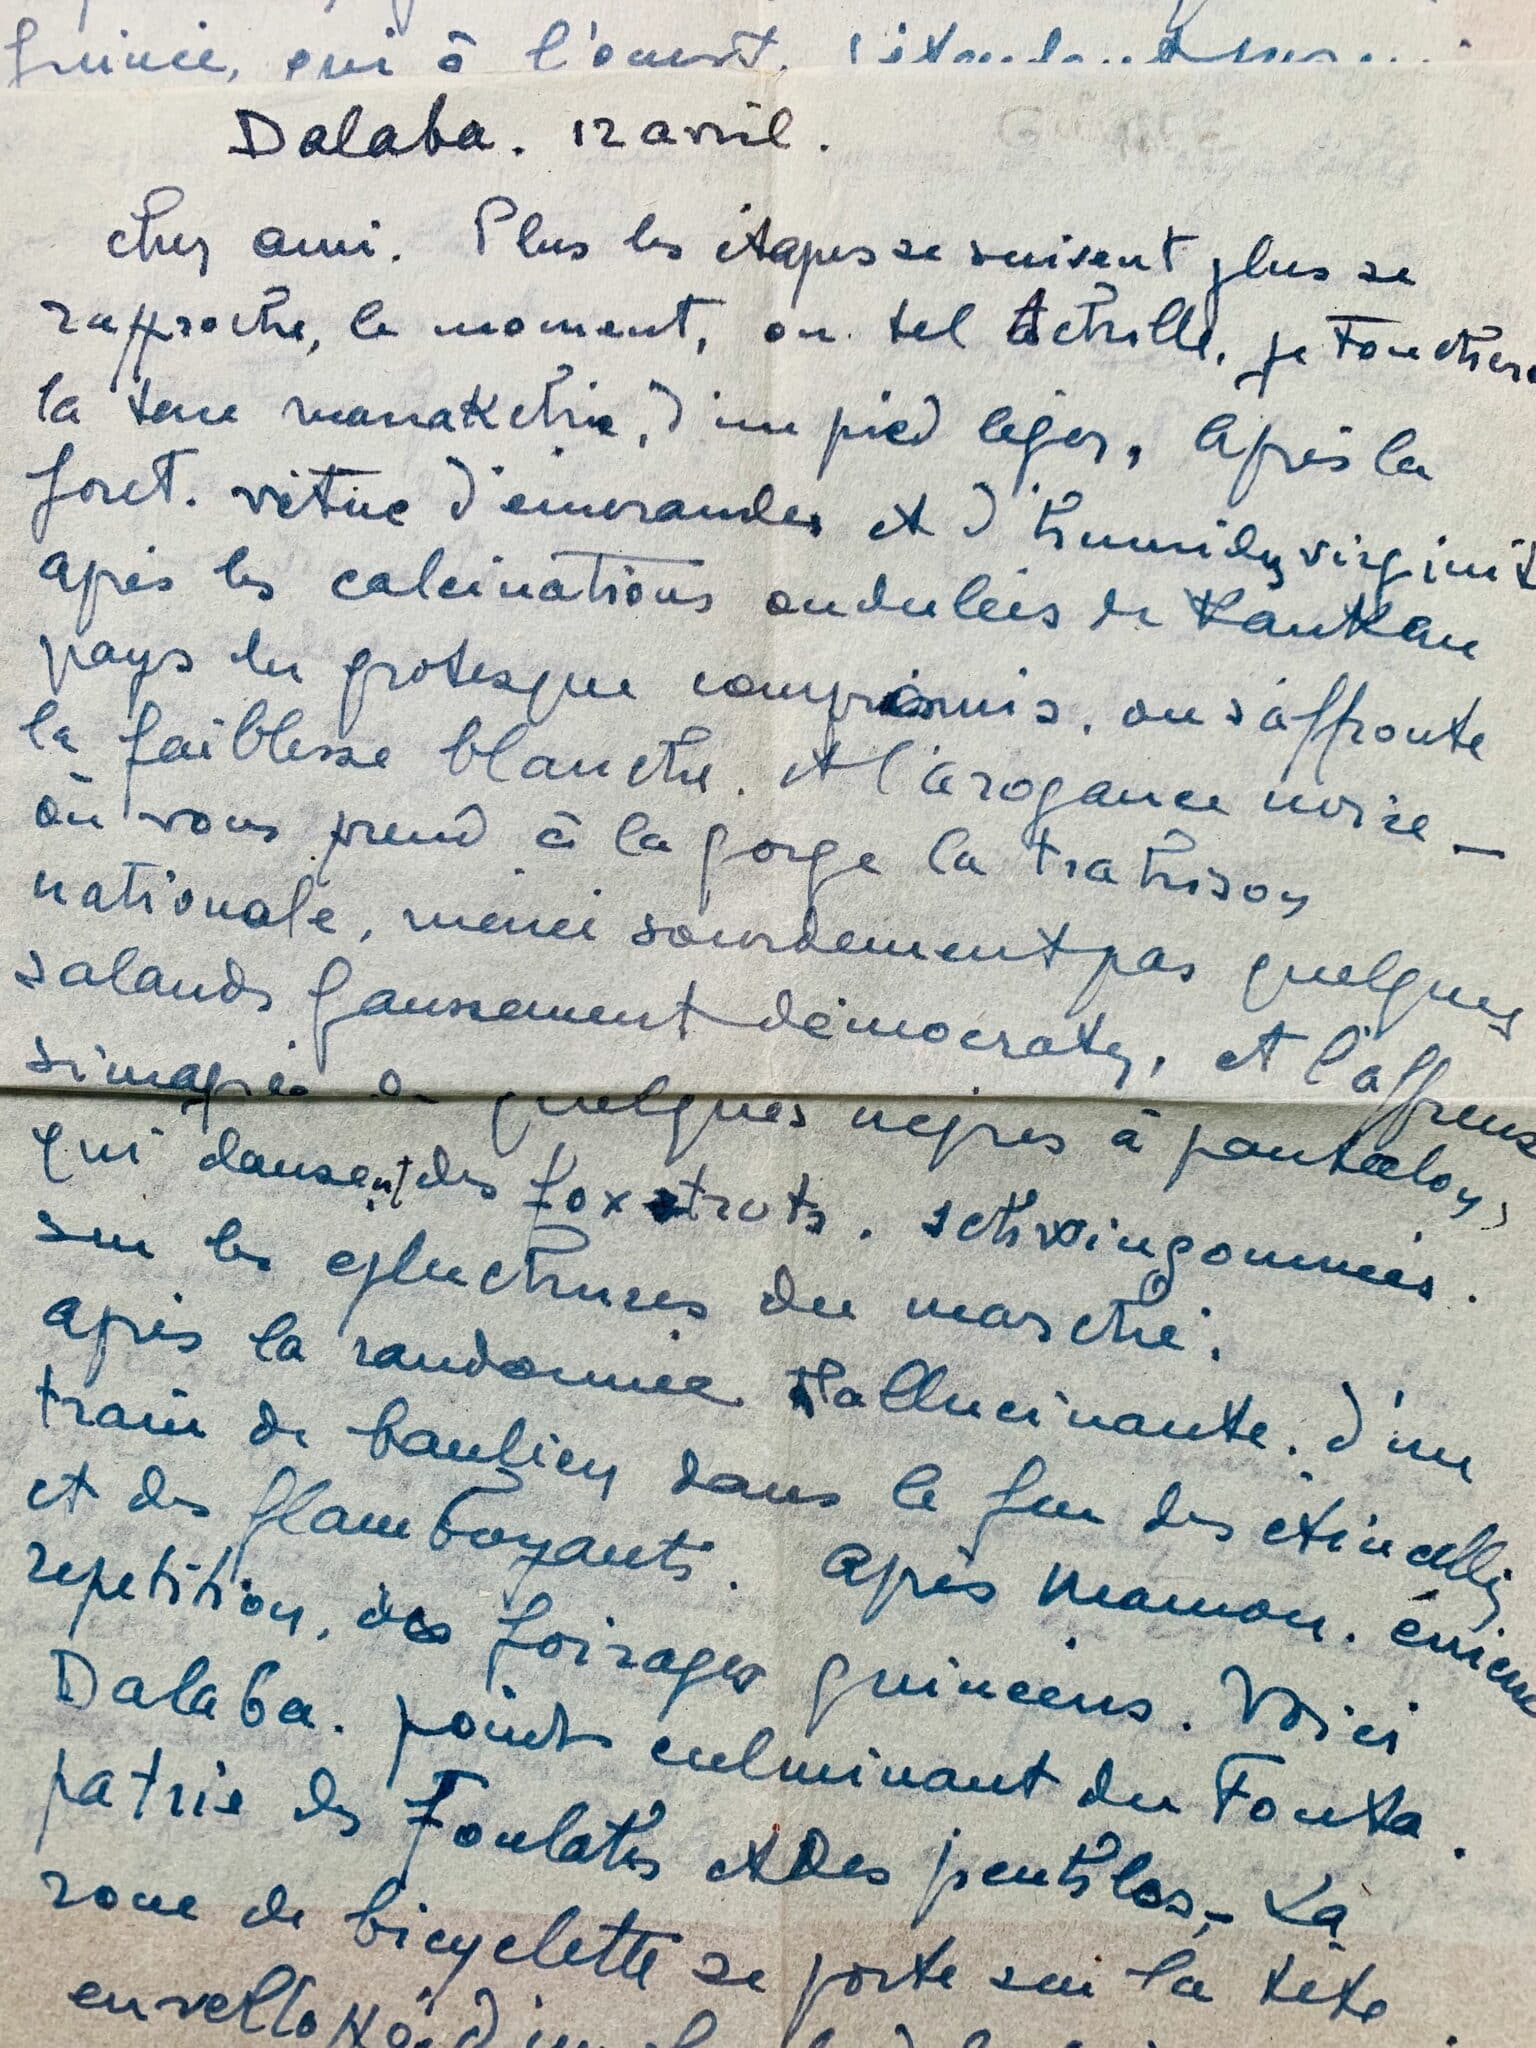 Guinée, qui à l'ouest,
Dalaba. 12 avril.
cher ami. Plus les étapes se suivent plus se
rapproche, le moment, ou tel Achille, je toucherai
la terre manakchie, d'un pied léger, Après la
foret. vétue d'émeraudes et d'humides virginit
après les calcinations ondulées de Kankan
pays du grotesque compromis, ou s'affronte
la faiblesse blanche. et l'arogance noire –
ou vous prend à la gorge la trahison
nationale, menée sourdement pas quelques
salauds faussement démocrates, et l'affreuse
simagrée de quelques nègres à pantalons,
qui dansent des fox trots. schwingommées.
sur les epluchures du marché.
après la randonnée hallucinante. d'un
train de banlieu dans le feu des étincelles
et des flamboyants. après Mamou. énième
repetition, des foirages guinéens. Voici
Dalaba. point culminant du Fouta.
patrie des Foulahs et des pentilos, – La
roue de bicyclette se porte sur la tête.